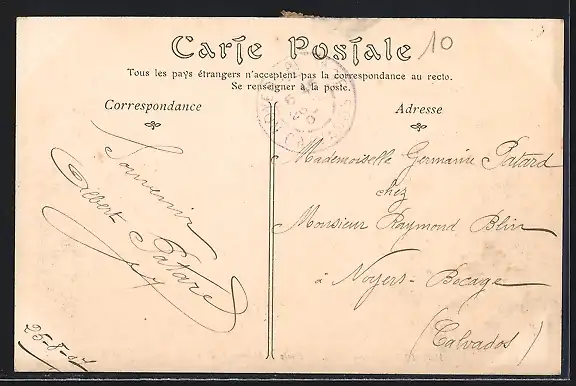 Carte Postale
10
Tous les pays étrangers n'acceptent pas la correspondance au recto.
Se renseigner à la poste.
Correspondance
Adresse
Souvenir
Gilbert Patard
25-8-
Mademoiselle Germaine Patard
chez
Monsieur Raymond Blin
à Noyers-Bocage
(Calvados)